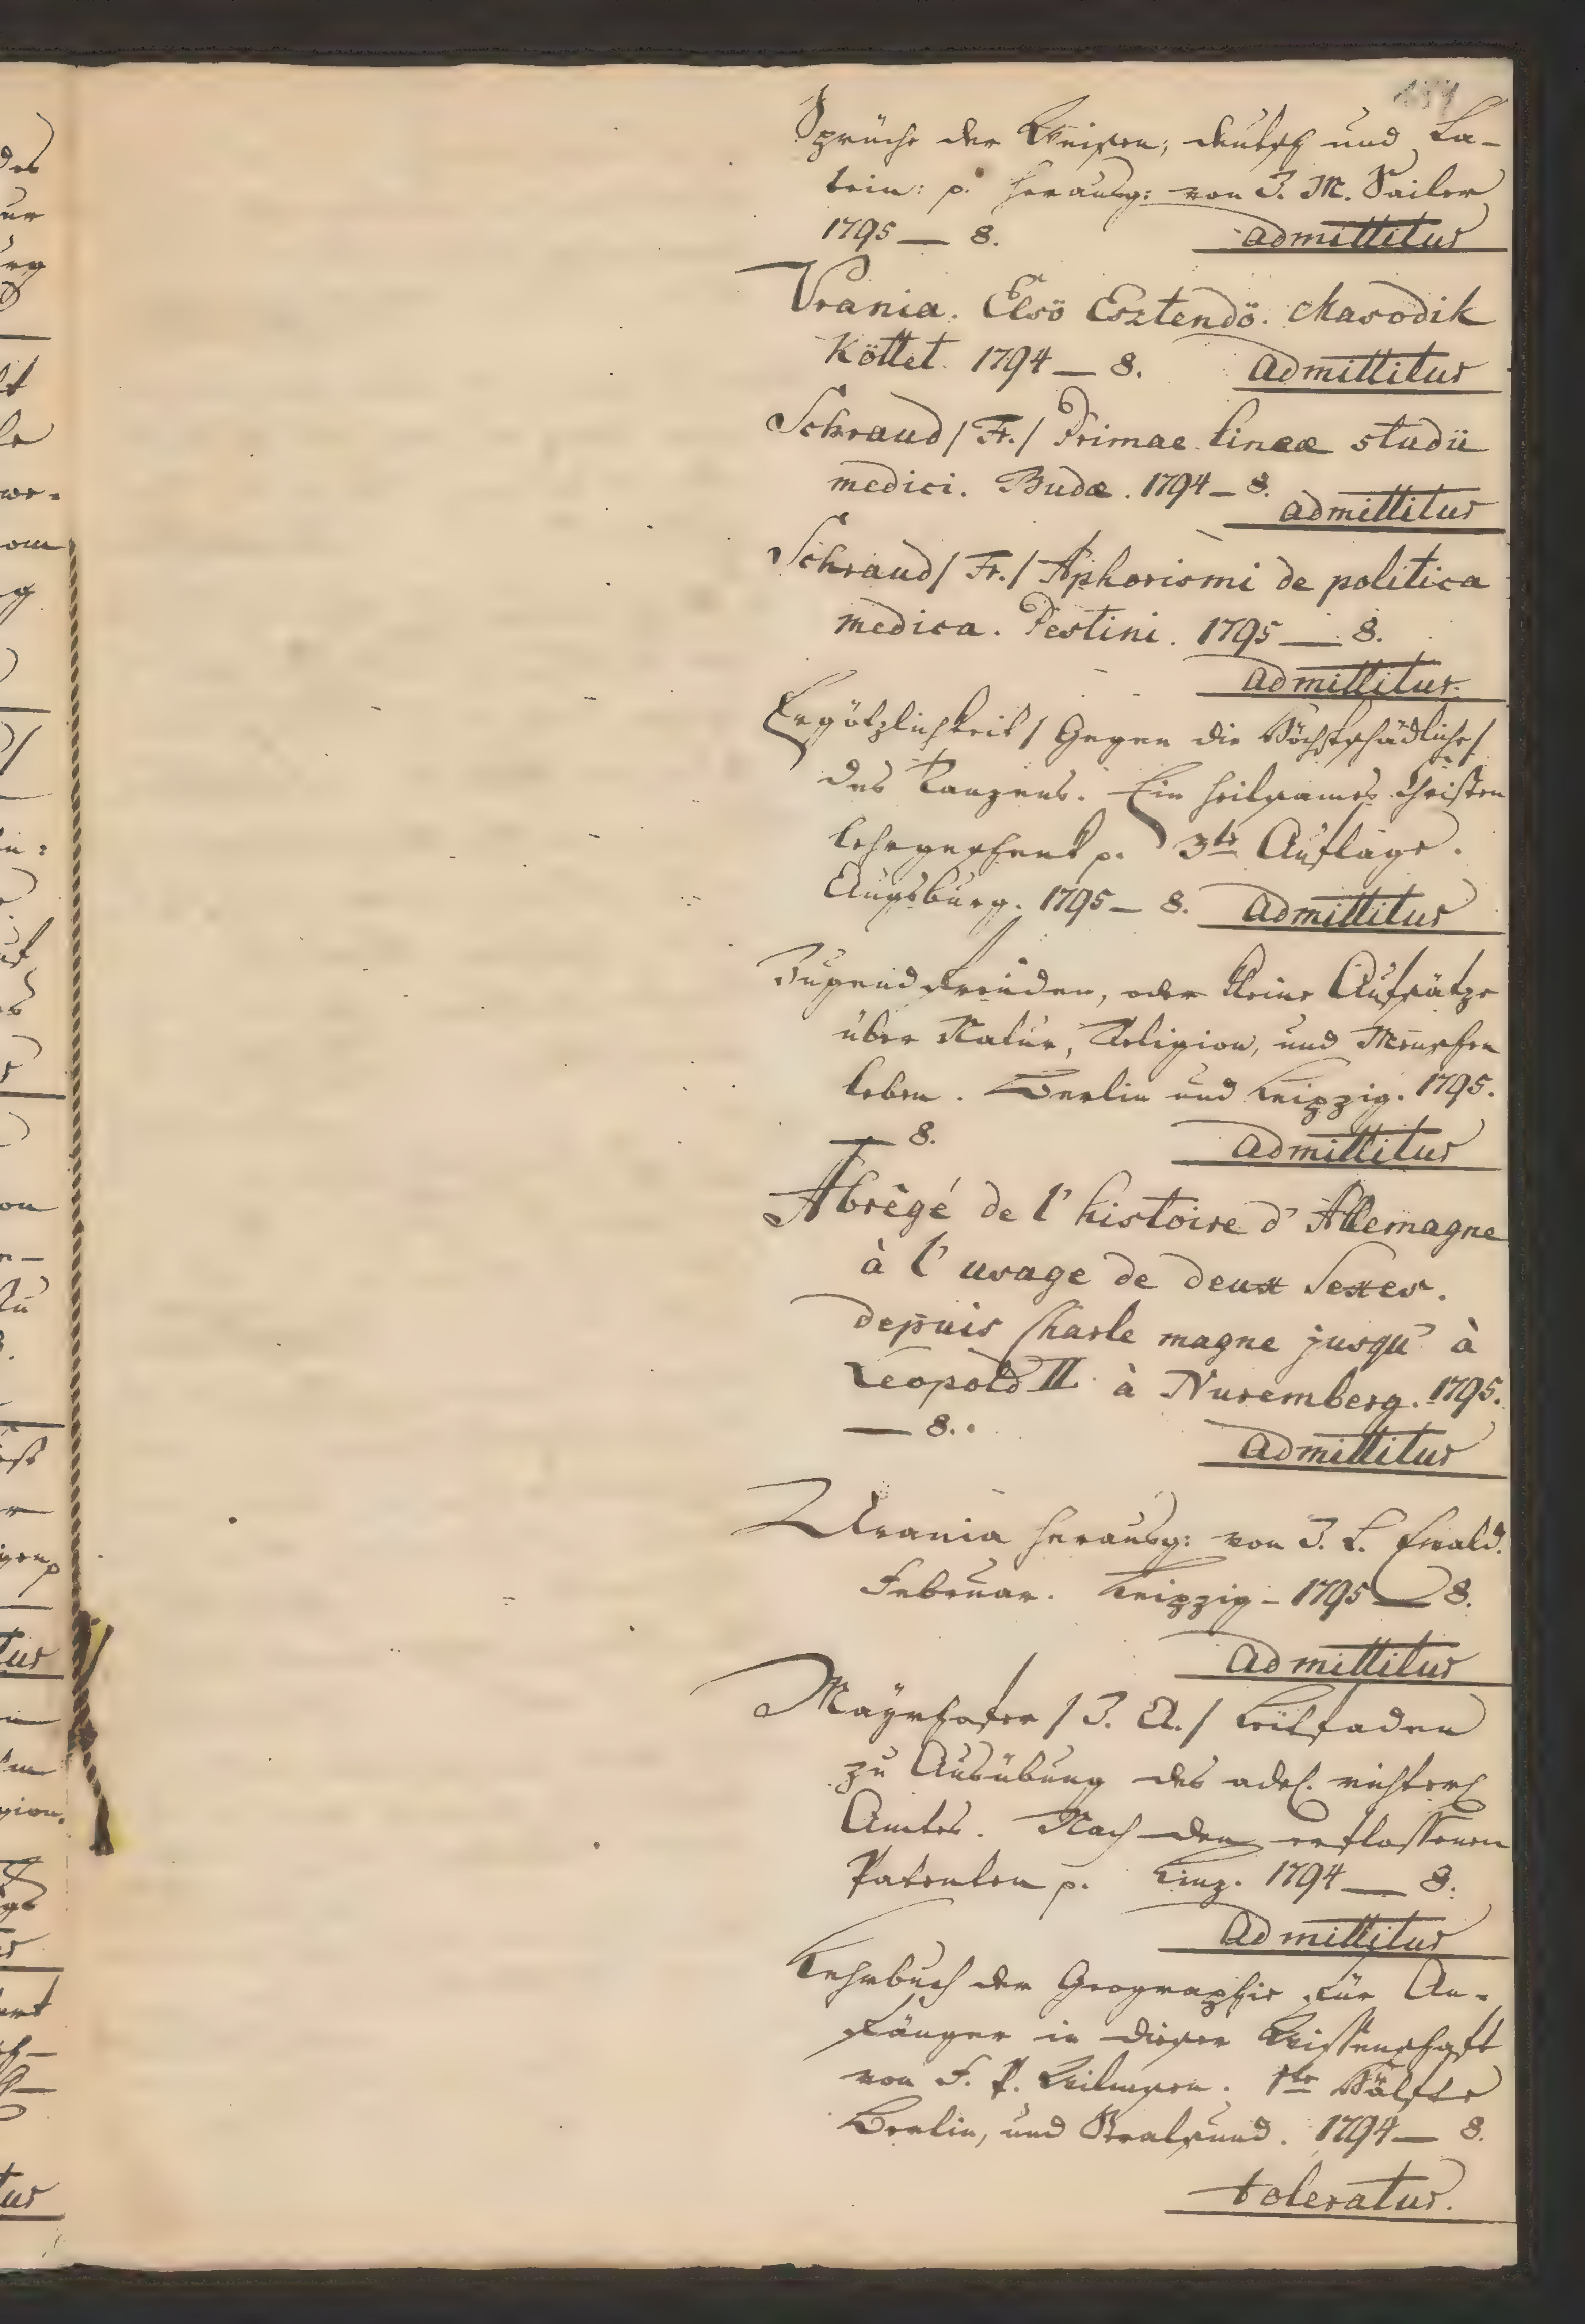 Sprüche der Weisen; deutsch und La-
tein: p. herausg: von J. M. Sailer
1795 — 8. admittitur
Urania. Elsö Esztendö. Masodik
Köttet. 1794 — 8. admittitur
Schraud / Fr. / Primae lineæ studii
medici. Budæ. 1794 — 8.
admittitur
Schraud / Fr. / Aphorismi de politica
medica. Pestini. 1795 — 8.
admittitur.
Ergötzlichkeit / Gegen die Höchstschädliche /
des Tanzens. Ein heilsames Christen
lehrgeschenk p. 3te Auflage.
Augsburg. 1795 — 8. admittitur
Jugendfreuden, oder kleine Aufsätze
über Natur, Religion, und Menschen
leben. Berlin und Leipzig. 1795.
— 8. admittitur
Abrêgé de l' histoire d' Allemagne
à l' usage de deux Sexes.
depuis Charle magne jusqu' à
Leopold II. à Nuremberg. 1795.
— 8. admittitur
Urania herausg: von J. L. Ewald.
Februar. Leipzig — 1795 — 8.
admittitur
Mayrhofer / J. A. / Leitfaden
zu Ausübung des adel. richterl
Amtes. Nach den erflossenen
Patenten p. Linz. 1794 — 8.
admittitur
Lehrbuch der Geographie für An-
fänger in dieser Wissenschaft
von F. P. Wilmsen. 1te Hälfte
Berlin, und Stralsund. 1794 — 8.
toleratur.